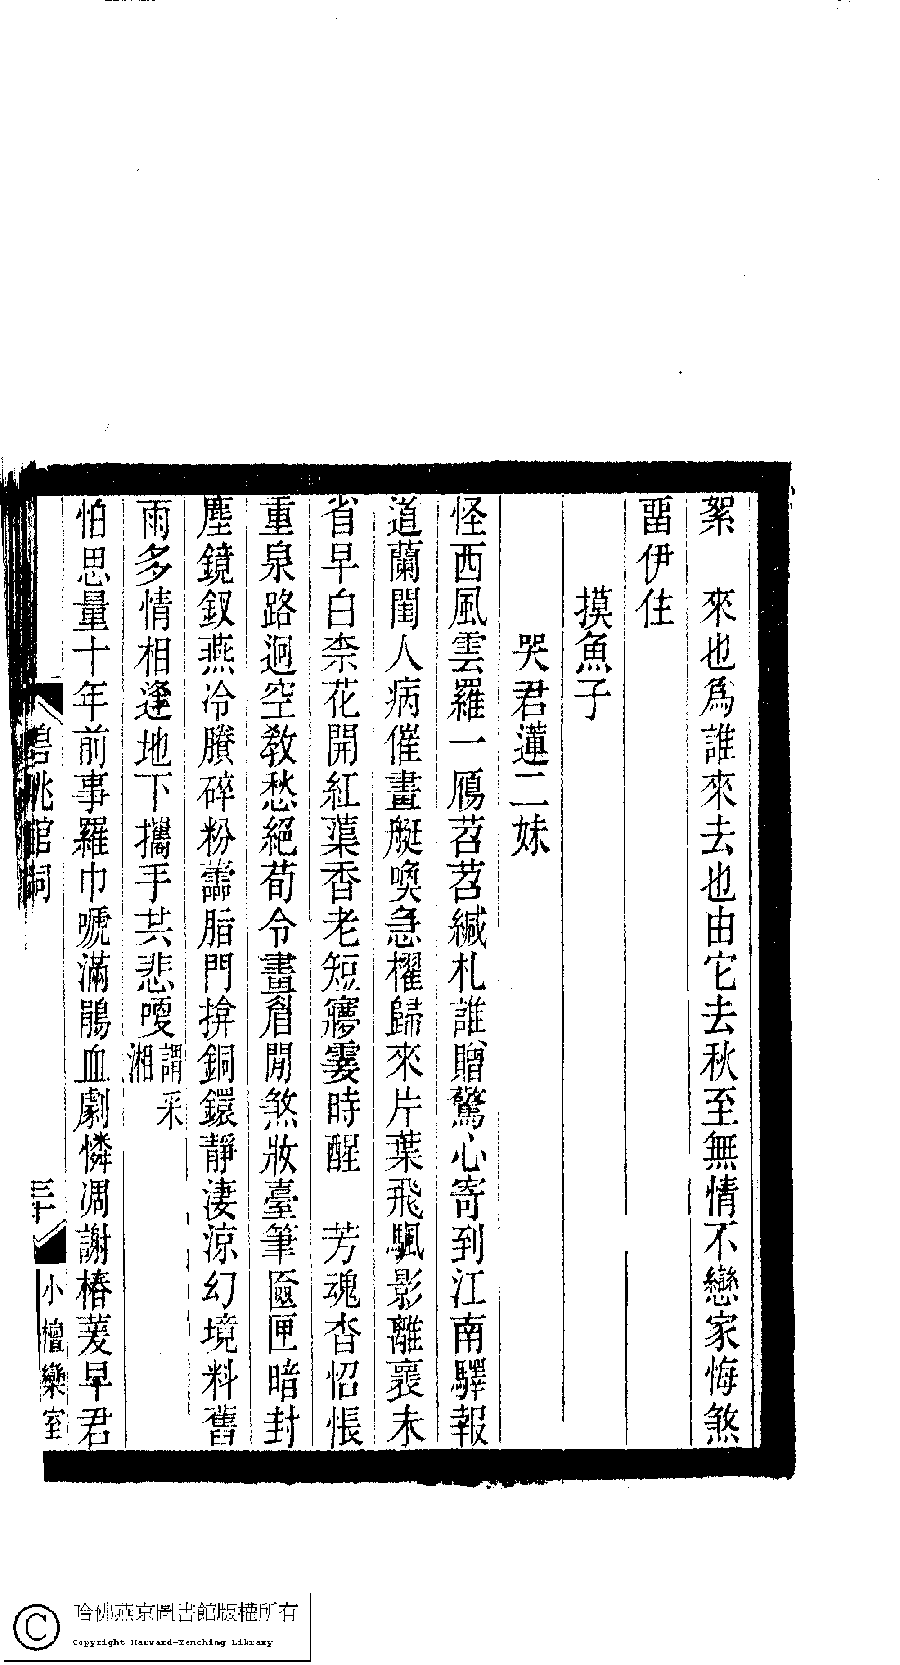 絮　來也爲誰來去也由它去秋至無情不戀家悔煞
畱伊住
摸魚子
哭君蓮二妹
怪西風雲羅一鴈苕苕緘札誰贈驚心寄到江南驛報
道蘭閨人病催畫艇喚急櫂歸來片葉飛颿影離襄未
省早白柰花開紅蕖香老短㝱霎時醒　芳魂杳怊悵
重泉路迥空敎愁絕荀令畫眉閒煞妝臺筆匳匣暗封
塵鏡釵燕冷賸碎粉蘦脂門揜銅鐶靜淒涼幻境料舊
雨多情相逢地下攜手共悲哽謂采湘
怕思量十年前事羅巾嗁滿鵑血劇憐凋謝椿萲早君
碧桃館詞
三十
小檀欒室
哈佛燕京圖書館版權所有
Copyright Harvard-Yenching Library